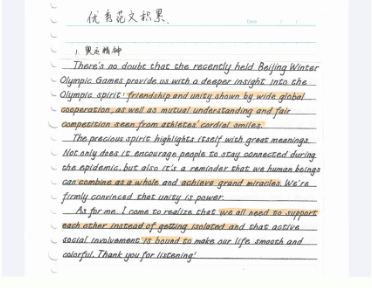 优秀范文积累.
Date / /
1. 奥运精神
There's no doubt that the recently held Beijing Winter
Olympic Games provide us with a deeper insight into the
Olympic spirit: friendship and unity shown by wide global
cooperation, as well as mutual understanding and fair
competition seen from athletes' cordial smiles.
The precious spirit highlights itself with great meanings.
Not only does it encourage people to stay connected during
the epidemic, but also it's a reminder that we human beings
can combine as a whole and achieve grand miracles. We're
firmly convinced that unity is power.
As for me, I come to realize that we all need to support
each other instead of getting isolated and that active
social involvement is bound to make our life smooth and
colorful. Thank you for listening!